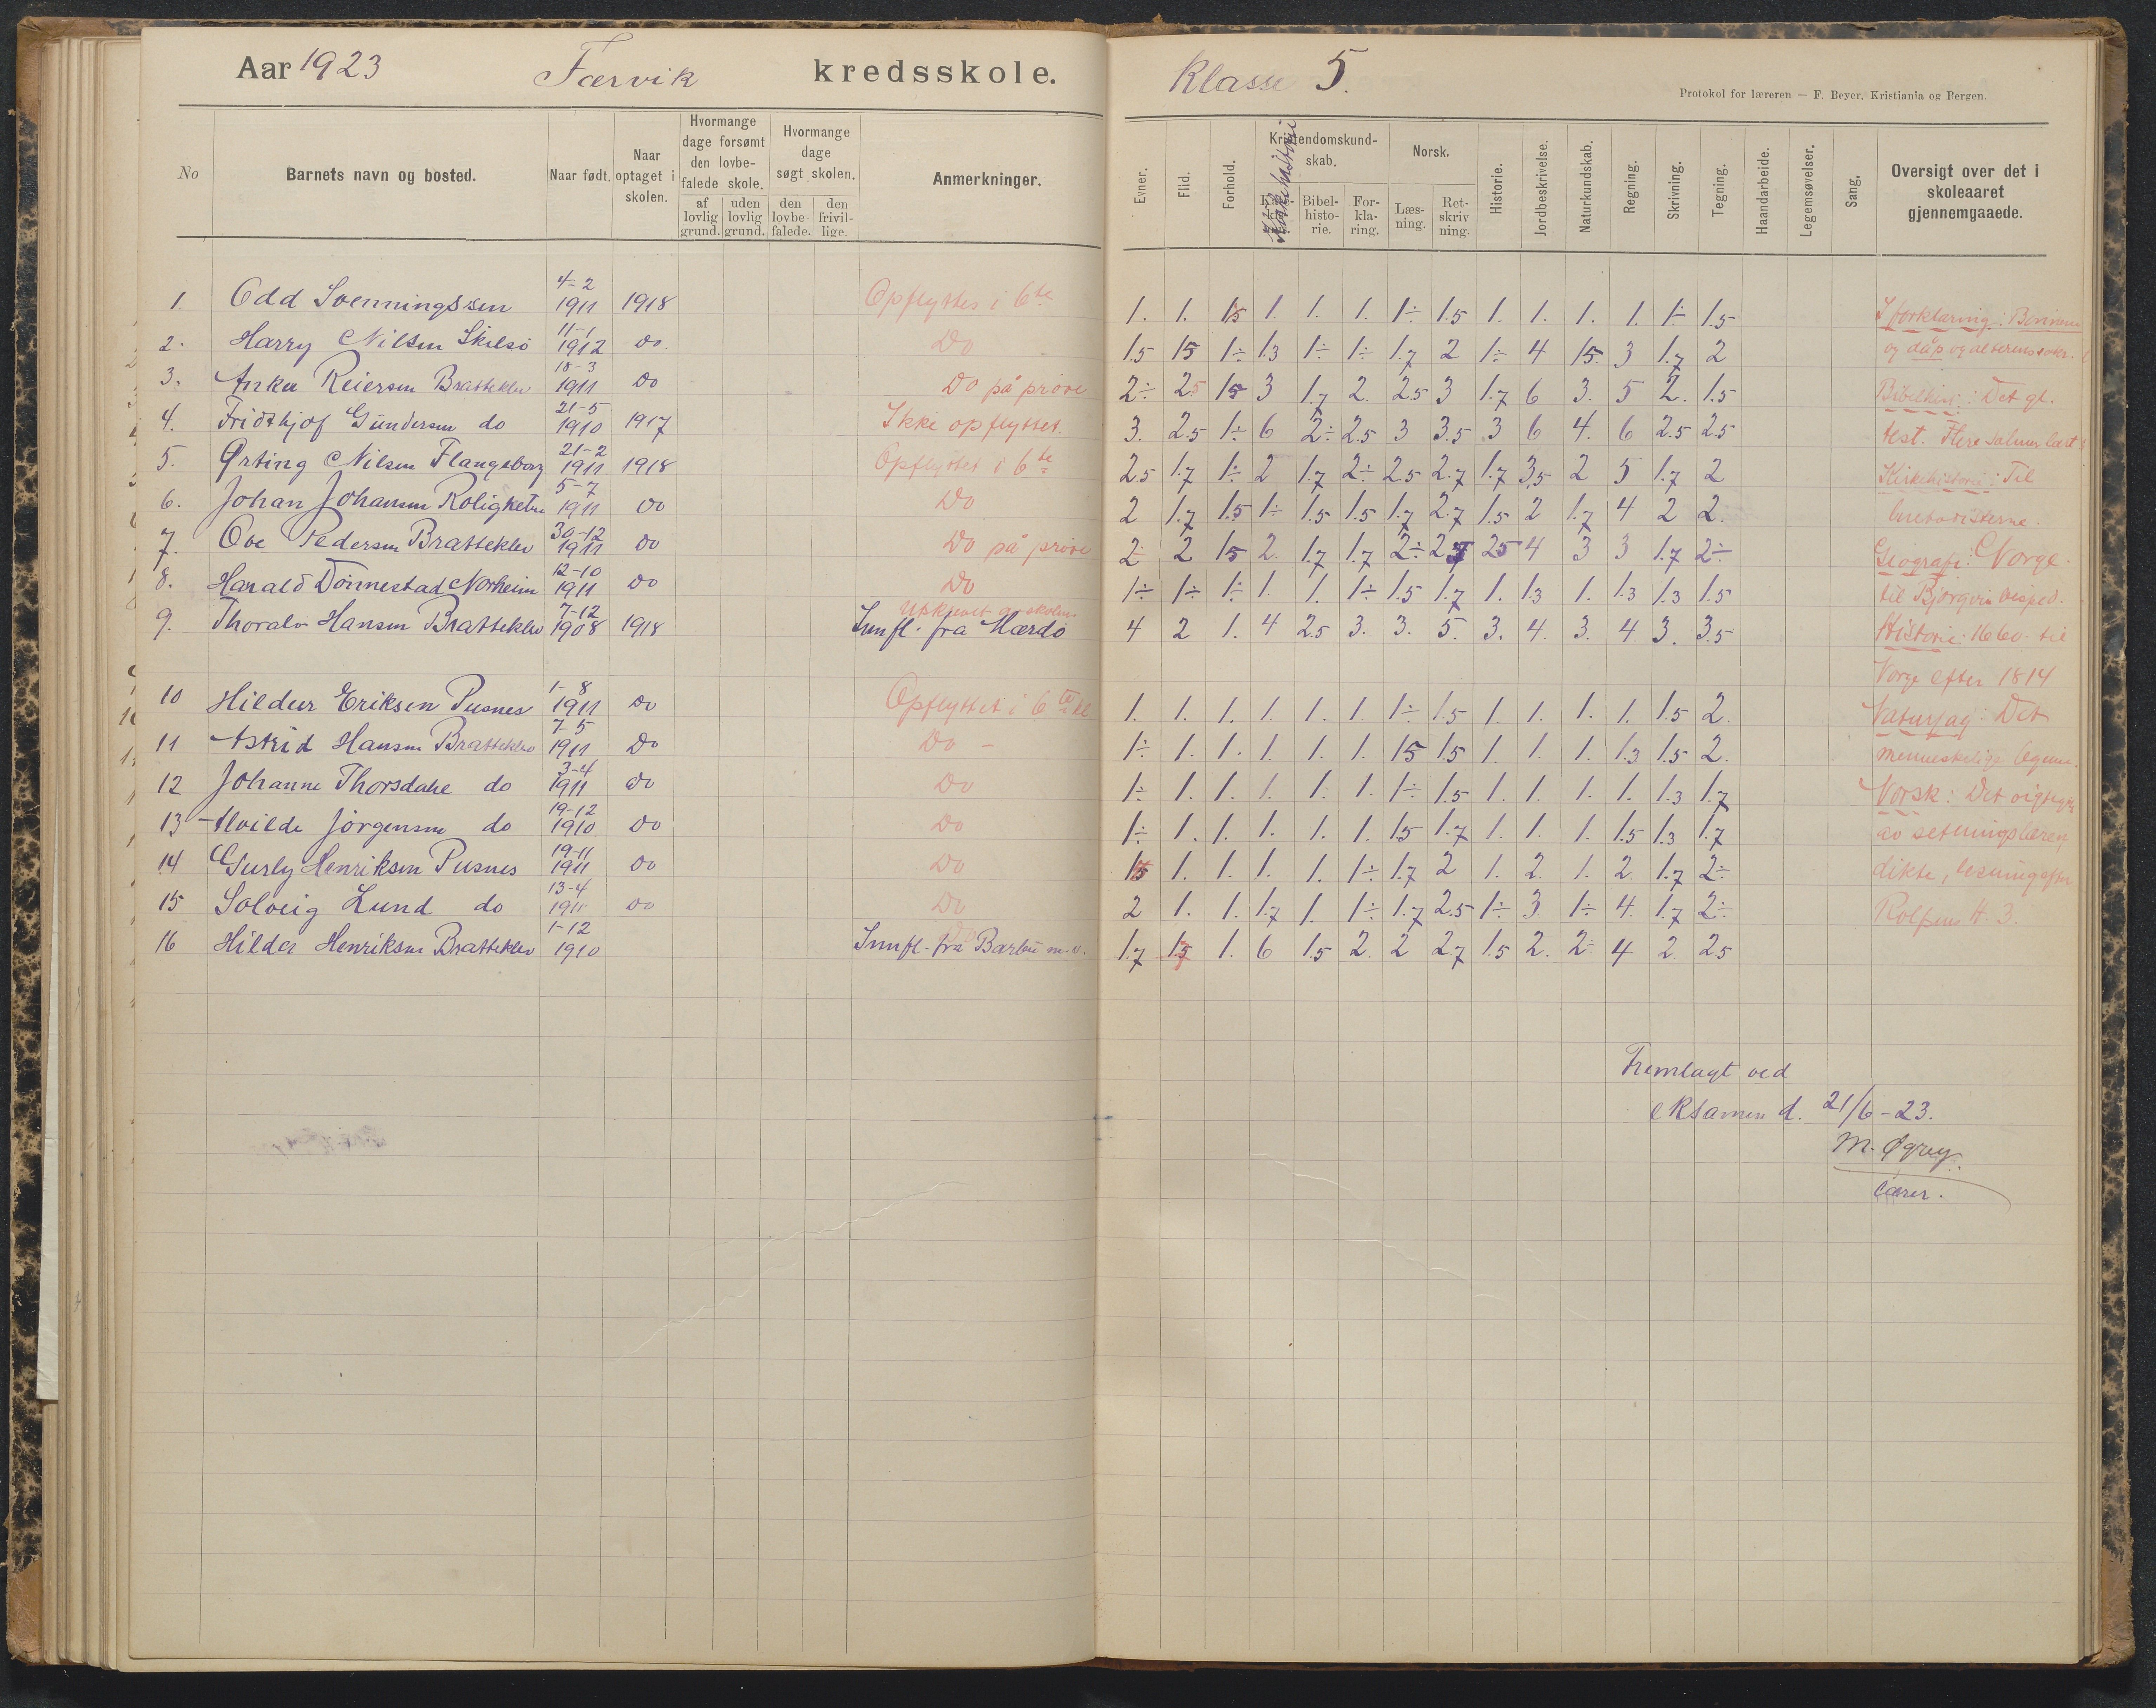 Aar 1923 Færvik kredsskole.
No Barnets navn og bosted. Naar født. Naar optaget i skolen. Hvormange dage forsømt den lovbefalede skole. af lovlig grund. uden lovlig grund. Hvormange dage søgt skolen. den lovbefalede. den frivillige. Anmerkninger.
1. Odd Svenningssen 4-2 1911 1918 Opflyttes i 6te
2. Harry Nilsen Skilsø 11-1 1912 do. Do
3. Anker Reiersen Bratteklev 18-3 1911 Do Do på prøve
4. Fridthjof Gundersen do 21-5 1910 1917 Ikke opflyttet.
5. Ørting Nilsen Flangeborg 21-2 1911 1918 Opflyttet i 6te
6. Johan Johansen Roligheten 5-7 1911 do Do
7. Ove Pedersen Bratteklev 30-12 1911 do Do på prøve
8. Harald Tønnestad Norheim 12-10 1911 do Do
9. Thoralv Hansen Bratteklev 7-12 1908 1918 Utskrevet av skolen. Innfl. fra Mærdø
10 Hildur Eriksen Pusnes 1-8 1911 do Opflyttet i 6te kl
11 Astrid Hansen Bratteklev 7-5 1911 Do Do -
12 Johanne Thorsdahl do 3-4 1911 do Do
13 Alvilde Jørgensen do 19-12 1910 Do Do
14 Gurly Henriksen Pusnes 19-11 1911 do Do
15 Solveig Lund do 13-4 1911 do Do
16 Hilda Henriksen Bratteklev 1-12 1910 Innfl. fra Barbu m.v.
Klasse 5.
Protokol for læreren — F. Beyer, Kristiania og Bergen.
Evner. Flid. Forhold. Kristendomskundskab. Kirkehistori Bibelhistorie. Forklaring. Norsk. Læsning. Retskrivning. Historie. Jordbeskrivelse. Naturkundskab. Regning. Skrivning. Tegning. Haandarbeide. Legemsøvelser. Sang. Oversigt over det i skoleaaret gjennemgaaede.
1. 1. 1.5 1. 1. 1. 1÷ 1.5 1. 1. 1. 1. 1÷ 1.5
1.5 1.5 1÷ 1.3 1÷ 1÷ 1.7 2 1÷ 4 1.5 3 1.7 2
2÷ 2.5 1.5 3 1.7 2. 2.5 3 1.7 6 3. 5 2. 1.5
3. 2.5 1÷ 6 2÷ 2.5 3 3.5 3 6 4. 6 2.5 2.5
2.5 1.7 1÷ 2 1.7 2÷ 2.5 2.7 1.7 3.5 2 5 1.7 2
2 1.7 1.5 1÷ 1.5 1.5 1.7 2.7 1.5 2 1.7 4 2 2.
2 2 1.5 2. 1.7 1.7 2÷ 2.7 2.5 4 3 3 1.7 2÷
1÷ 1÷ 1÷ 1. 1. 1÷ 1.5 1.7 1. 1.3 1. 1.3 1.3 1.5
4 2 1. 4 2.5 3. 3. 5. 3. 4. 3. 4 3. 3.5
1. 1. 1. 1. 1. 1. 1÷ 1.5 1. 1. 1. 1. 1.5 2.
1÷ 1. 1. 1. 1. 1. 1.5 1.5 1. 1. 1. 1.3 1.5 2.
1÷ 1. 1. 1. 1. 1. 1÷ 1.5 1. 1. 1. 1. 1.3 1.7
1÷ 1. 1. 1. 1. 1. 1.5 1.7 1. 1. 1. 1.5 1.3 1.7
1.5 1. 1. 1. 1. 1÷ 1.7 2 1. 2. 1. 2. 1.7 2÷
2 1. 1. 1.7 1. 1÷ 1.7 2.5 1÷ 3. 1÷ 4. 1.7 2÷
1.7 1.5 1. 6 1.5 2. 2 2.7 1.5 2. 2÷ 4 2 2.5
I forklaring: Bønnene
og dåp og alterens sakr.
Bibelhist.: Det gl.
test. Flere salmer lært
Kirkehistorie: Til
Geografi: Norge
til Bjørgvin bisped.
Historie: 1660 til
Norge efter 1814
Naturfag: Det
menneskelige legeme.
Norsk: Det vigtigste
av setningslæren
dikte, lesning efter
Rolfsens H. 3.
Fremlagt ved
eksamen d. 21/6-23.
lærer.